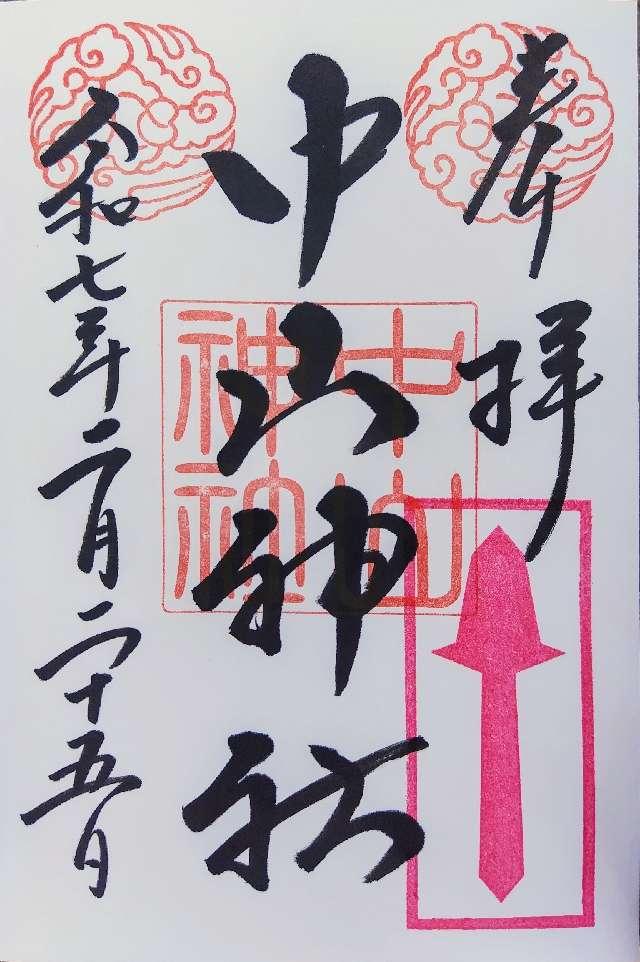 奉拝
中山神社
令和七年二月二十五日
中山
神社